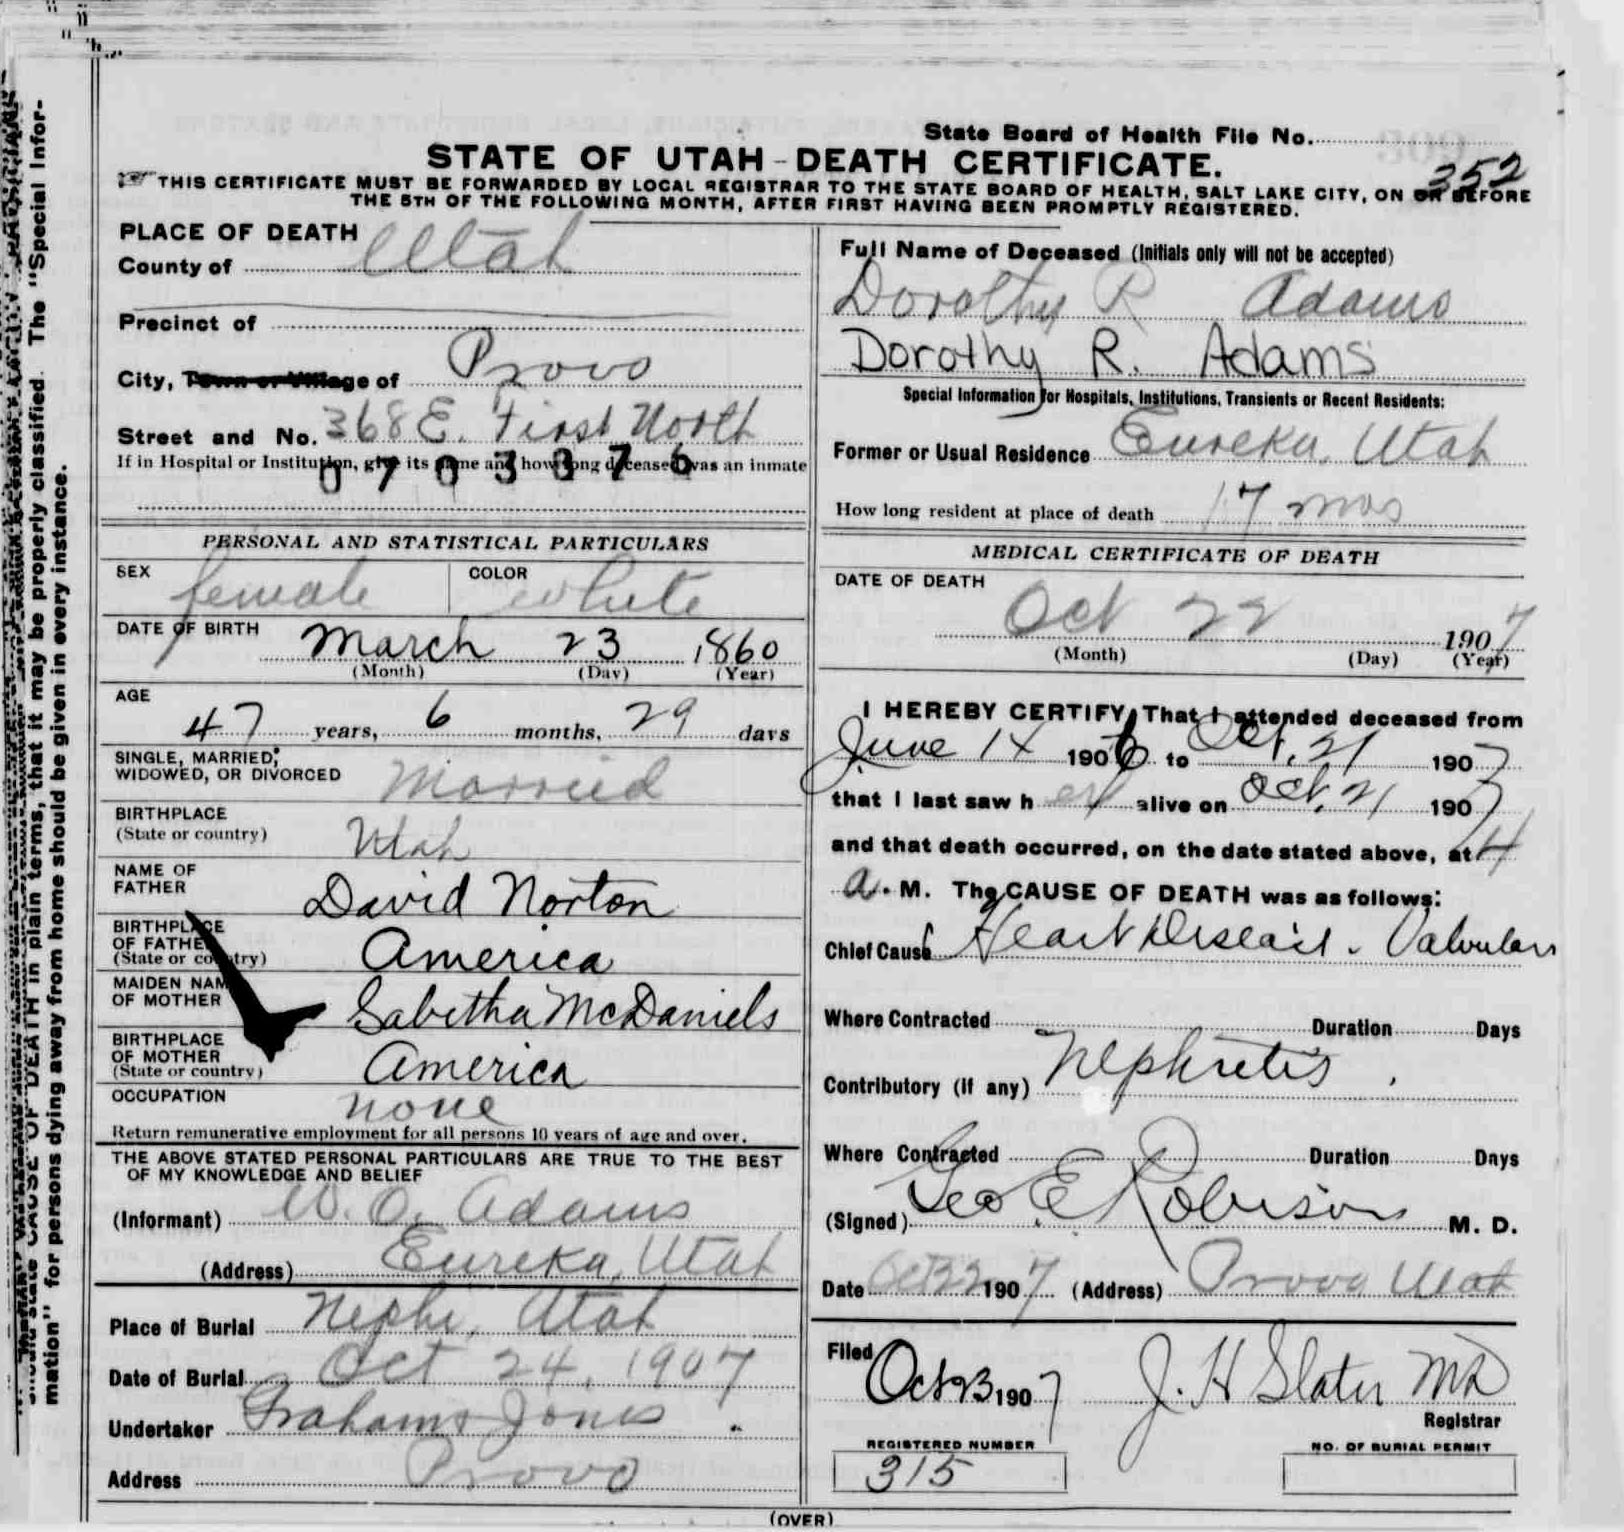 State Board of Health File No.
352
STATE OF UTAH - DEATH CERTIFICATE.
THIS CERTIFICATE MUST BE FORWARDED BY LOCAL REGISTRAR TO THE STATE BOARD OF HEALTH, SALT LAKE CITY, ON OR BEFORE
THE 5TH OF THE FOLLOWING MONTH, AFTER FIRST HAVING BEEN PROMPTLY REGISTERED.
PLACE OF DEATH
County of Utah
Precinct of
City, Town or Village of Provo
Street and No. 368 E. First North
If in Hospital or Institution, give its name and how long deceased was an inmate
PERSONAL AND STATISTICAL PARTICULARS
SEX female COLOR white
DATE OF BIRTH March 23 1860
(Month) (Day) (Year)
AGE
47 years, 6 months, 29 days
SINGLE, MARRIED,
WIDOWED, OR DIVORCED Married
BIRTHPLACE
(State or country) Utah
NAME OF
FATHER David Norton
BIRTHPLACE
OF FATHER
(State or country) America
MAIDEN NAME
OF MOTHER Sabetha McDaniels
BIRTHPLACE
OF MOTHER
(State or country) America
OCCUPATION none
Return remunerative employment for all persons 10 years of age and over.
THE ABOVE STATED PERSONAL PARTICULARS ARE TRUE TO THE BEST
OF MY KNOWLEDGE AND BELIEF
(Informant) W. O. Adams
(Address) Eureka, Utah
Place of Burial Nephi, Utah
Date of Burial Oct 24, 1907
Undertaker Grahams Jones
Address Provo
Full Name of Deceased (Initials only will not be accepted)
Dorothy R Adams
Dorothy R. Adams
Special Information for Hospitals, Institutions, Transients or Recent Residents:
Former or Usual Residence Eureka, Utah
How long resident at place of death 17 mos
MEDICAL CERTIFICATE OF DEATH
DATE OF DEATH
Oct 22 1907
(Month) (Day) (Year)
I HEREBY CERTIFY, That I attended deceased from
June 14 1906 to Oct. 21 1907
that I last saw her alive on Oct. 21 1907
and that death occurred, on the date stated above, at 4
a. M. The CAUSE OF DEATH was as follows:
Chief Cause Heart Disease. Valvular
Where Contracted Duration Days
Contributory (if any) Nephretis
Where Contracted Duration Days
(Signed) Geo E Robison M. D.
Date Oct 22 1907 (Address) Provo Utah
Filed Oct 23 1907 J. H Slater MD
Registrar
REGISTERED NUMBER
315
NO. OF BURIAL PERMIT
(OVER)
should state CAUSE OF DEATH in plain terms, that it may be properly classified. The "Special Infor-
mation" for persons dying away from home should be given in every instance.